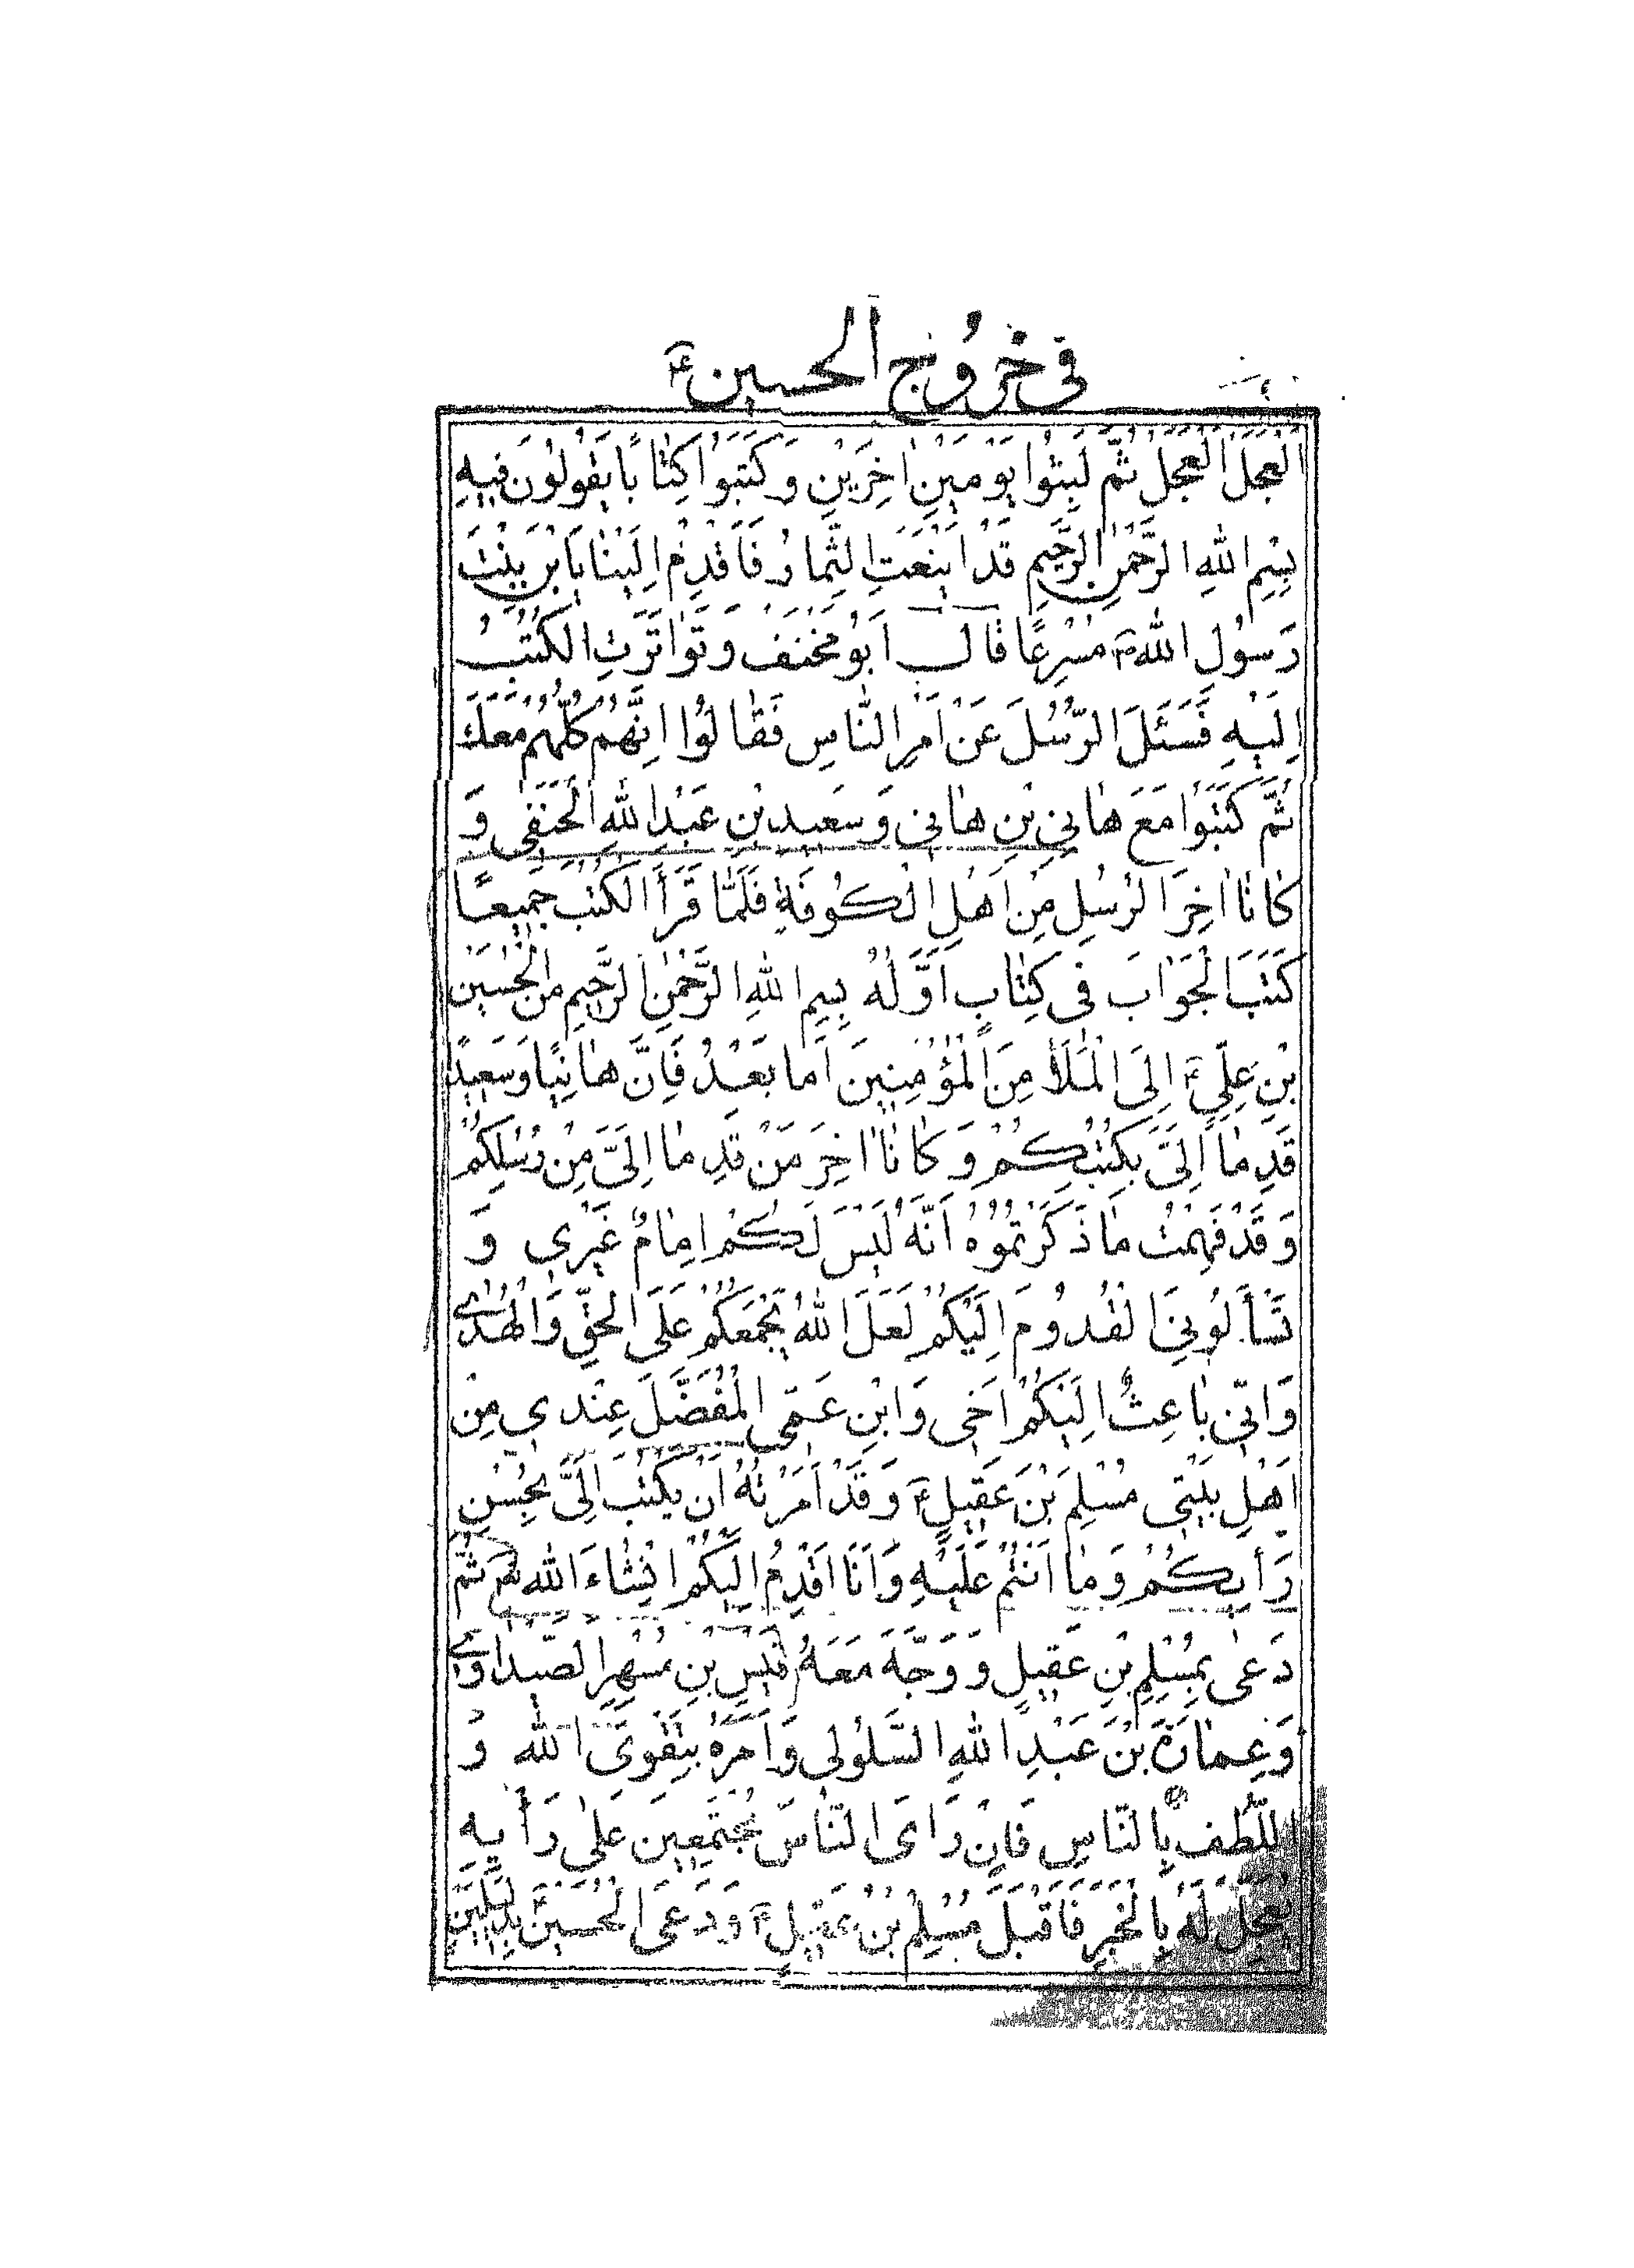 في خروج الحسين ع
العَجَلَ العَجَلَ ثُمَّ لَبِثُوا يَوْمَيْنِ اٰخِرَيْنِ وَكَتَبُوا كِتٰابًا يَقُولُونَ فِيهِ
بِسْمِ اللهِ الرَّحْمٰنِ الرَّحِيمِ قَدْ اَيْنَعَتِ الثِّمارُ فَاَقْدِمْ اِلَيْنٰا يَا بْنَ بِنْتِ
رَسُولِ اللهِ ص مُسْرِعًا قٰالَ اَبُو مِخْنَفْ وَتَوٰاتَرَتِ الكُتُبُ
اِلَيْهِ فَسَئَلَ الرُّسُلَ عَنْ اَمْرِ النّٰاسِ فَقٰالُوا اِنَّهُمْ كُلُّهُمْ مَعَكَ
ثُمَّ كَتَبُوا مَعَ هٰانِي بْنِ هٰانِي وَسَعيدِ بْنِ عَبْدِ اللهِ الحَنَفِي وَ
كٰانٰا اٰخِرَ الرُسُلِ مِنْ اَهْلِ الْكُوفَةِ فَلَمّٰا قَرَأَ الكُتُبَ جَميعًا
كَتَبَ الْجَوٰابَ في كِتٰابٍ اَوَّلُهُ بِسْمِ اللهِ الرَّحْمٰنِ الرَّحِيمِ مِنَ الْحُسَيْنِ
بْنِ عَلِيٍّ ع اِلَى الْمَلَأ مِنَ الْمُؤْمِنينَ اَما بَعْدُ فَاِنَّ هٰانِيًا وَسَعيدًا
قَدِمٰا اِلَيَّ بِكُتُبِكُمْ وَكٰانٰا اٰخِرَ مَنْ قَدِمٰا اِلَيَّ مِنْ رُسُلِكُمْ
وَقَدْ فَهِمْتُ مٰا ذَكَرْتُمُوهُ اَنَّهُ لَيْسَ لَكُمْ اِمٰامٌ غَيْرِي وَ
تَسْأَلُونِيَ الْقُدُومَ اِلَيْكُمْ لَعَلَّ اللهُ يَجْمَعَكُمْ عَلَى الحَقِّ وَالْهُدٰى
وَاِنّي بٰاعِثٌ اِلَيْكُمْ اَخي وَابْنِ عَمّي الْمُفَضَّلَ عِنْدي مِنْ
اَهْلِ بَيْتي مُسْلِمِ بْنَ عَقيلٍ ع وَقَدْ اَمَرْتُهُ اَنْ يَكْتُبَ اِلَيَّ بِحُسْنِ
رَأيِكُمْ وَمٰا اَنْتُمْ عَلَيْهِ وَاَنَا اَقْدِمُ اِلَيْكُمْ انْشٰاءَ اللهُ تع ثُمَّ
دَعٰى بِمُسْلِمِ بْنِ عَقيلٍ وَوَجَّهَ مَعَهُ قَيْسِ بْنِ مُسْهِرِ الصَّيْداوٰي
وَعِمٰارَةَ بْنَ عَبْدِ اللهِ السَّلُولى وَاَمَرَهُ بِتَقْوَى اللهِ وَ
اللُّطْفِ بِالنّاسِ فَاِنْ رَاَى النّٰاسَ مُجْتَمِعينَ عَلٰى رَأيِهِ
يُعَجِّلْ لَهُ بِالْخَبَرِ فَاَقْبَلَ مُسْلِمُ بْنُ عَقيلٍ ع وَدَعَى الْحُسَيْنُ ع بِدَليلَيْنِ